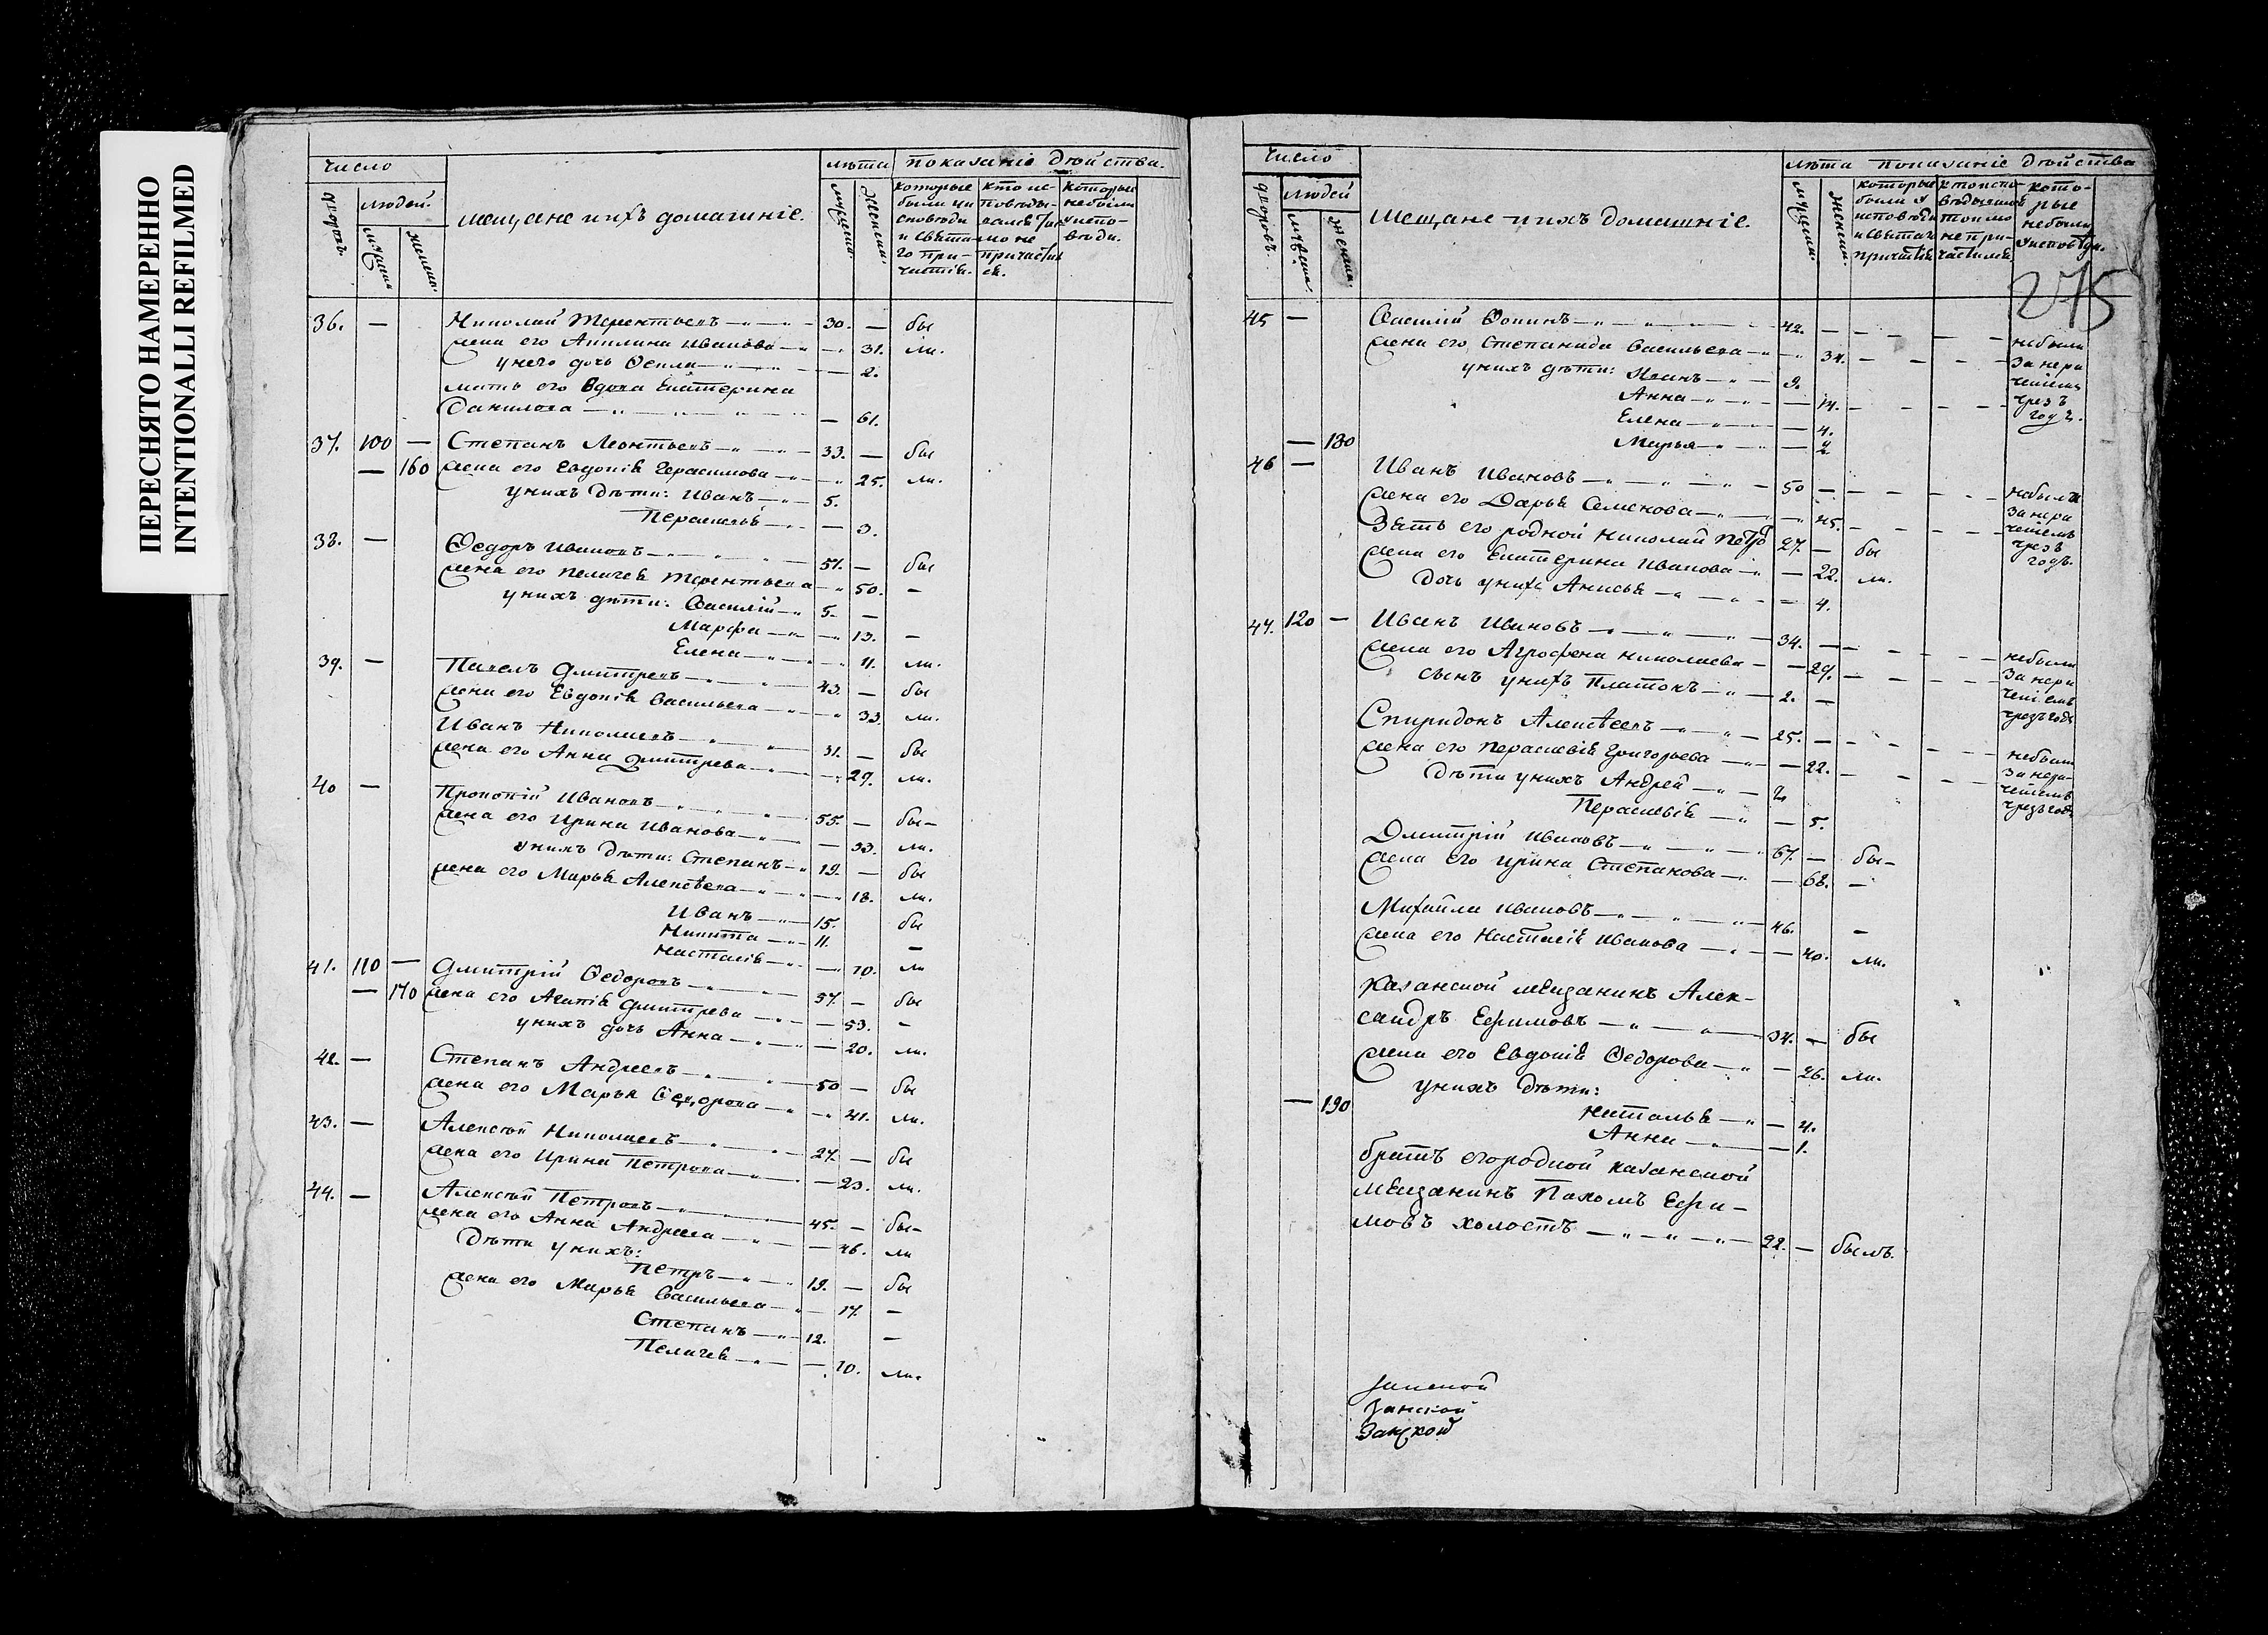 ПЕРЕСНЯТО НАМЕРЕННО
INTENTIONALLI REFILMED
число
лѣта показаніе дѣйства.
дворовъ.
людей.
мещане ихъ домашніе.
мужеска
женска.
мужеска.
женска.
которые были у исповеди и святаго причастія.
кто исповѣдывался токмо не причастился.
которые небыли уисповѣди.
36. — Николай Терентьевъ 30. — бы
жена его Акилина Иванова — 31. ли.
унего дочь — 2.
мать его вдова Екатерина
Данилова — 61.
37. 100 — Степанъ Леонтьевъ 33. — бы
— 160 жена его Евдокія Герасимова — 25. ли.
унихъ дѣти: Иванъ 5.
Пераскевья — 3.
38. — Ѳедоръ Ивановъ 57. — бы
жена его Пелагея Терентьева 50. —
унихъ дѣти: Василій 5. —
Марфа — 13. —
Елена — 11. ли.
39. — Павелъ Дмитревъ 43. — бы
жена его Евдокія Васильева 33. ли.
Иванъ Николаевъ 31. — бы
жена его Анна Дмитрева — 29. ли.
40 — Прокопій Ивановъ 55. — бы-
жена его Ирина Иванова — 33. ли.
унихъ дѣти: Степанъ 19. — бы
жена его Марья Алексѣева — 18. ли.
Иванъ 15. бы
Никита 11. —
Настасія — 10. ли
41. 110 — Дмитрій Ѳедоровъ 57. — бы
— 170 жена его Агапія Дмитрева — 53. —
унихъ дочь Анна — 20. ли.
42. — Степанъ Андреевъ 50 — бы
жена его Марья Ѳедорова — 41. ли.
43. — Алексѣй Николаевъ 27. — бы
жена его Ирина Петрова — 23. ли.
44. — Алексѣй Петровъ 45. — бы-
жена его Анна Андреева — 46. ли
Дѣти унихъ:
Петръ 19. — бы
жена его Марья Васильева — 17. —
Степанъ 12. —
Пелагея — 10. ли.
число
лѣта показаніе дѣйства
дворовъ.
людей
мещане ихъ домашніе.
мужеска.
женска.
мужеска.
женска.
которые были у исповѣди и святаго причастія
кто исповѣдывался токмо не причастился
которые небыли уисповѣди.
275
45 — Василій Ѳокинъ 42. — — — — небыли
жена его Степанида Васильева — 34. — — — за нера
унихъ дѣти: Иванъ 9. чніемъ
Анна — 14. — — — — чрезъ
Елена — 4. годъ.
— 180 Марья — 2
46 — Иванъ Ивановъ 50 — — — — небыли
жена его Дарья Семенова — 45. — — — за нера
Зять его родной Николай Петро 27. — бы чніемъ
жена его Екатерина Иванова — 22. ли. чрезъ
дочь унихъ Анисья — 4. годъ.
47. 120 — Иванъ Ивановъ 34. — — — — небыли
жена его Агрофена Николаева — 29. — — — за нера
сынъ унихъ Платонъ 2. — чніемъ
чрезъ годъ
Спиридонъ Алексѣевъ 25. — — — — небыли
жена его Пераскевія Григорьева — 22. — — — за нера-
Дѣти унихъ Андрей 2 чніемъ
Пераскевія — 5. чрезъ годъ
Дмитрій Ивановъ 67. — бы-
жена его Ирина Степанова — 68. —
Михайла Ивановъ 46. —
жена его Настасія Иванова — 40. ли.
Казанской мещанинъ Алек-
сандръ Ефимовъ 34. — бы
жена его Евдокія Ѳедорова — 26. ли.
унихъ дѣти:
— 190 Наталья — 4.
Анна — 1.
братъ егородной казанской
мещанинъ Пахомъ Ефи-
мовъ холостъ 22. — былъ.
Занской
Занской
Занской